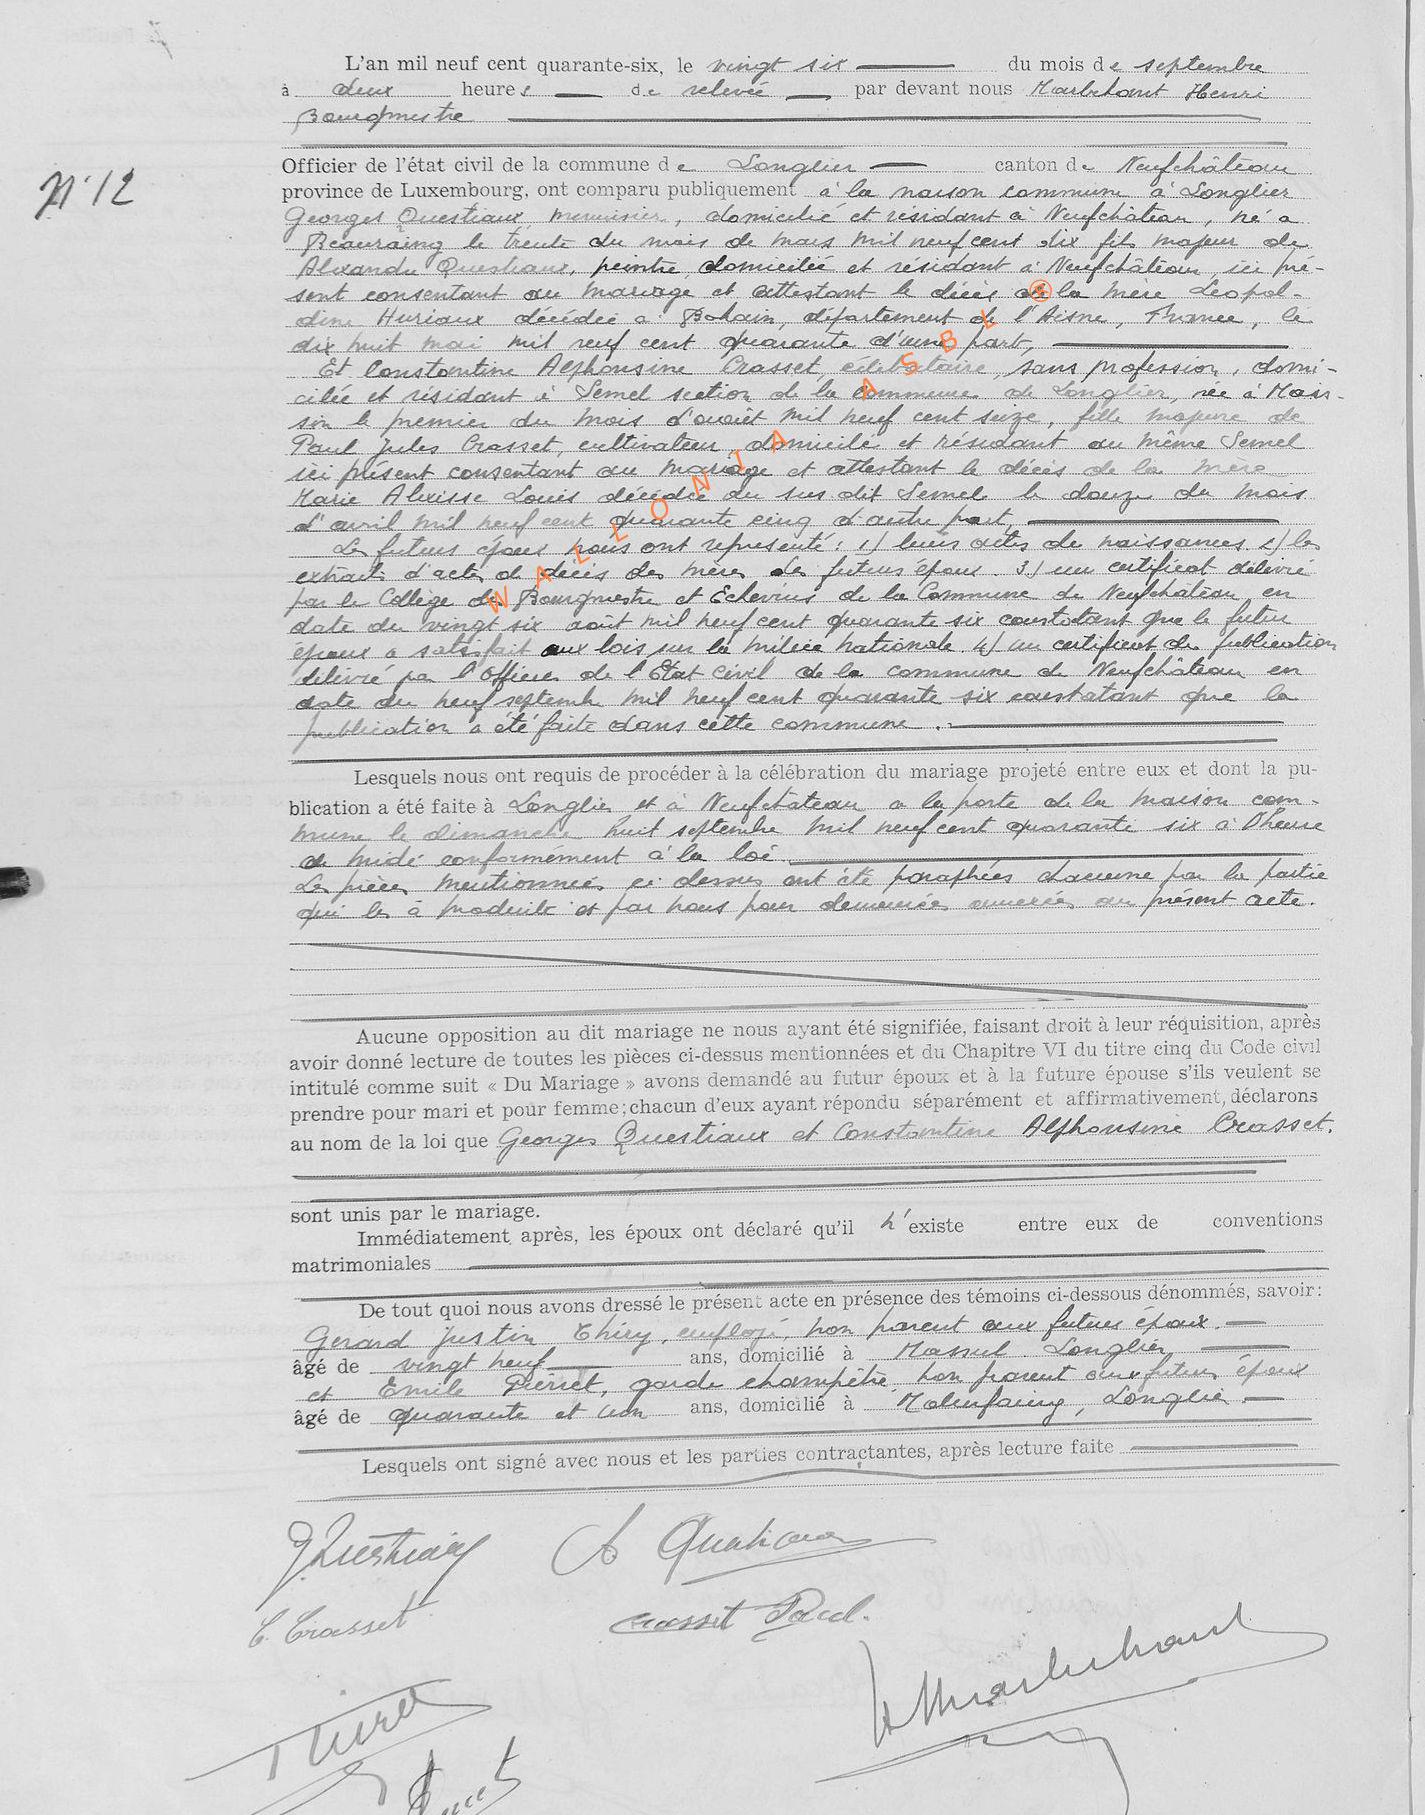 L'an mil neuf cent quarante-six, le vingt six du mois de septembre
à deux heures de relevée par devant nous Marbehant Henri
Bourgmestre
Officier de l'état civil de la commune de Longlier canton de Neufchâteau
N° 12
province de Luxembourg, ont comparu publiquement à la maison commune à Longlier
Georges Questiaux, menuisier, domicilié et résidant à Neufchâteau, né a
Beauraing le trente du mois de mars mil neuf cent dix fils majeur de
Alexandre Questiaux, peintre, domicilié et résidant à Neufchâteau, ici pré-
sent consentant au mariage et attestant le décès de la mère Léopol-
dine Huriaux décédée à Bohain, département de l'Aisne, France, le
dix huit mai mil neuf cent quarante d'une part,
Et Constantine Alphonsine Crasset, célibataire, sans profession, domi-
ciliée et résidant à Semel section de la commune de Longlier, née à Mais-
sin le premier du mois d'août mil neuf cent seize, fille majeure de
Paul Jules Crasset, cultivateur, domicilié et résidant au même Semel
ici présent consentant au mariage et attestant le décès de la mère
Marie Alexisse Louis décédée au sus dit Semel le douze du mois
d'avril mil neuf cent quarante cinq d'autre part,
Les futurs époux nous ont représenté : 1) leurs actes de naissances 2) les
extraits d'actes de décès des mères des futurs époux. 3) un certificat délivré
par le Collège des Bourgmestre et Echevins de la Commune de Neufchâteau en
date du vingt six août mil neuf cent quarante six constatant que le futur
époux a satisfait aux lois sur la milice nationale 4) un certificat de publication
délivré par l'Officier de l'Etat civil de la commune de Neufchâteau en
date du neuf septembre mil neuf cent quarante six constatant que la
publication a été faite dans cette commune.
Lesquels nous ont requis de procéder à la célébration du mariage projeté entre eux et dont la pu-
blication a été faite à Longlier et à Neufchâteau a la porte de la maison com-
mune le dimanche huit septembre mil neuf cent quarante six à l'heure
de midi conformément à la loi.
Les pièces mentionnées ci dessus ont été paraphées chacune par la partie
qui les à produite et par nous pour demeurées annexées au présent acte.
Aucune opposition au dit mariage ne nous ayant été signifiée, faisant droit à leur réquisition, après
avoir donné lecture de toutes les pièces ci-dessus mentionnées et du Chapitre VI du titre cinq du Code civil
intitulé comme suit « Du Mariage » avons demandé au futur époux et à la future épouse s'ils veulent se
prendre pour mari et pour femme; chacun d'eux ayant répondu séparément et affirmativement, déclarons
au nom de la loi que Georges Questiaux et Constantine Alphonsine Crasset.
sont unis par le mariage.
Immédiatement après, les époux ont déclaré qu'il n'existe entre eux de conventions
matrimoniales
De tout quoi nous avons dressé le présent acte en présence des témoins ci-dessous dénommés, savoir :
Gerard Justin Thiry, employé, non parent aux futurs époux.
âgé de vingt neuf ans, domicilié à Massul Longlier
et Emile Pierret, garde champêtre, non parent aux futurs époux
âgé de quarante et un ans, domicilié à Molinfaing, Longlier
Lesquels ont signé avec nous et les parties contractantes, après lecture faite
G. Questiaux A Questiaux
C. Crasset Crasset Paul.
H Marbehant
WALLONIA ASBL ©